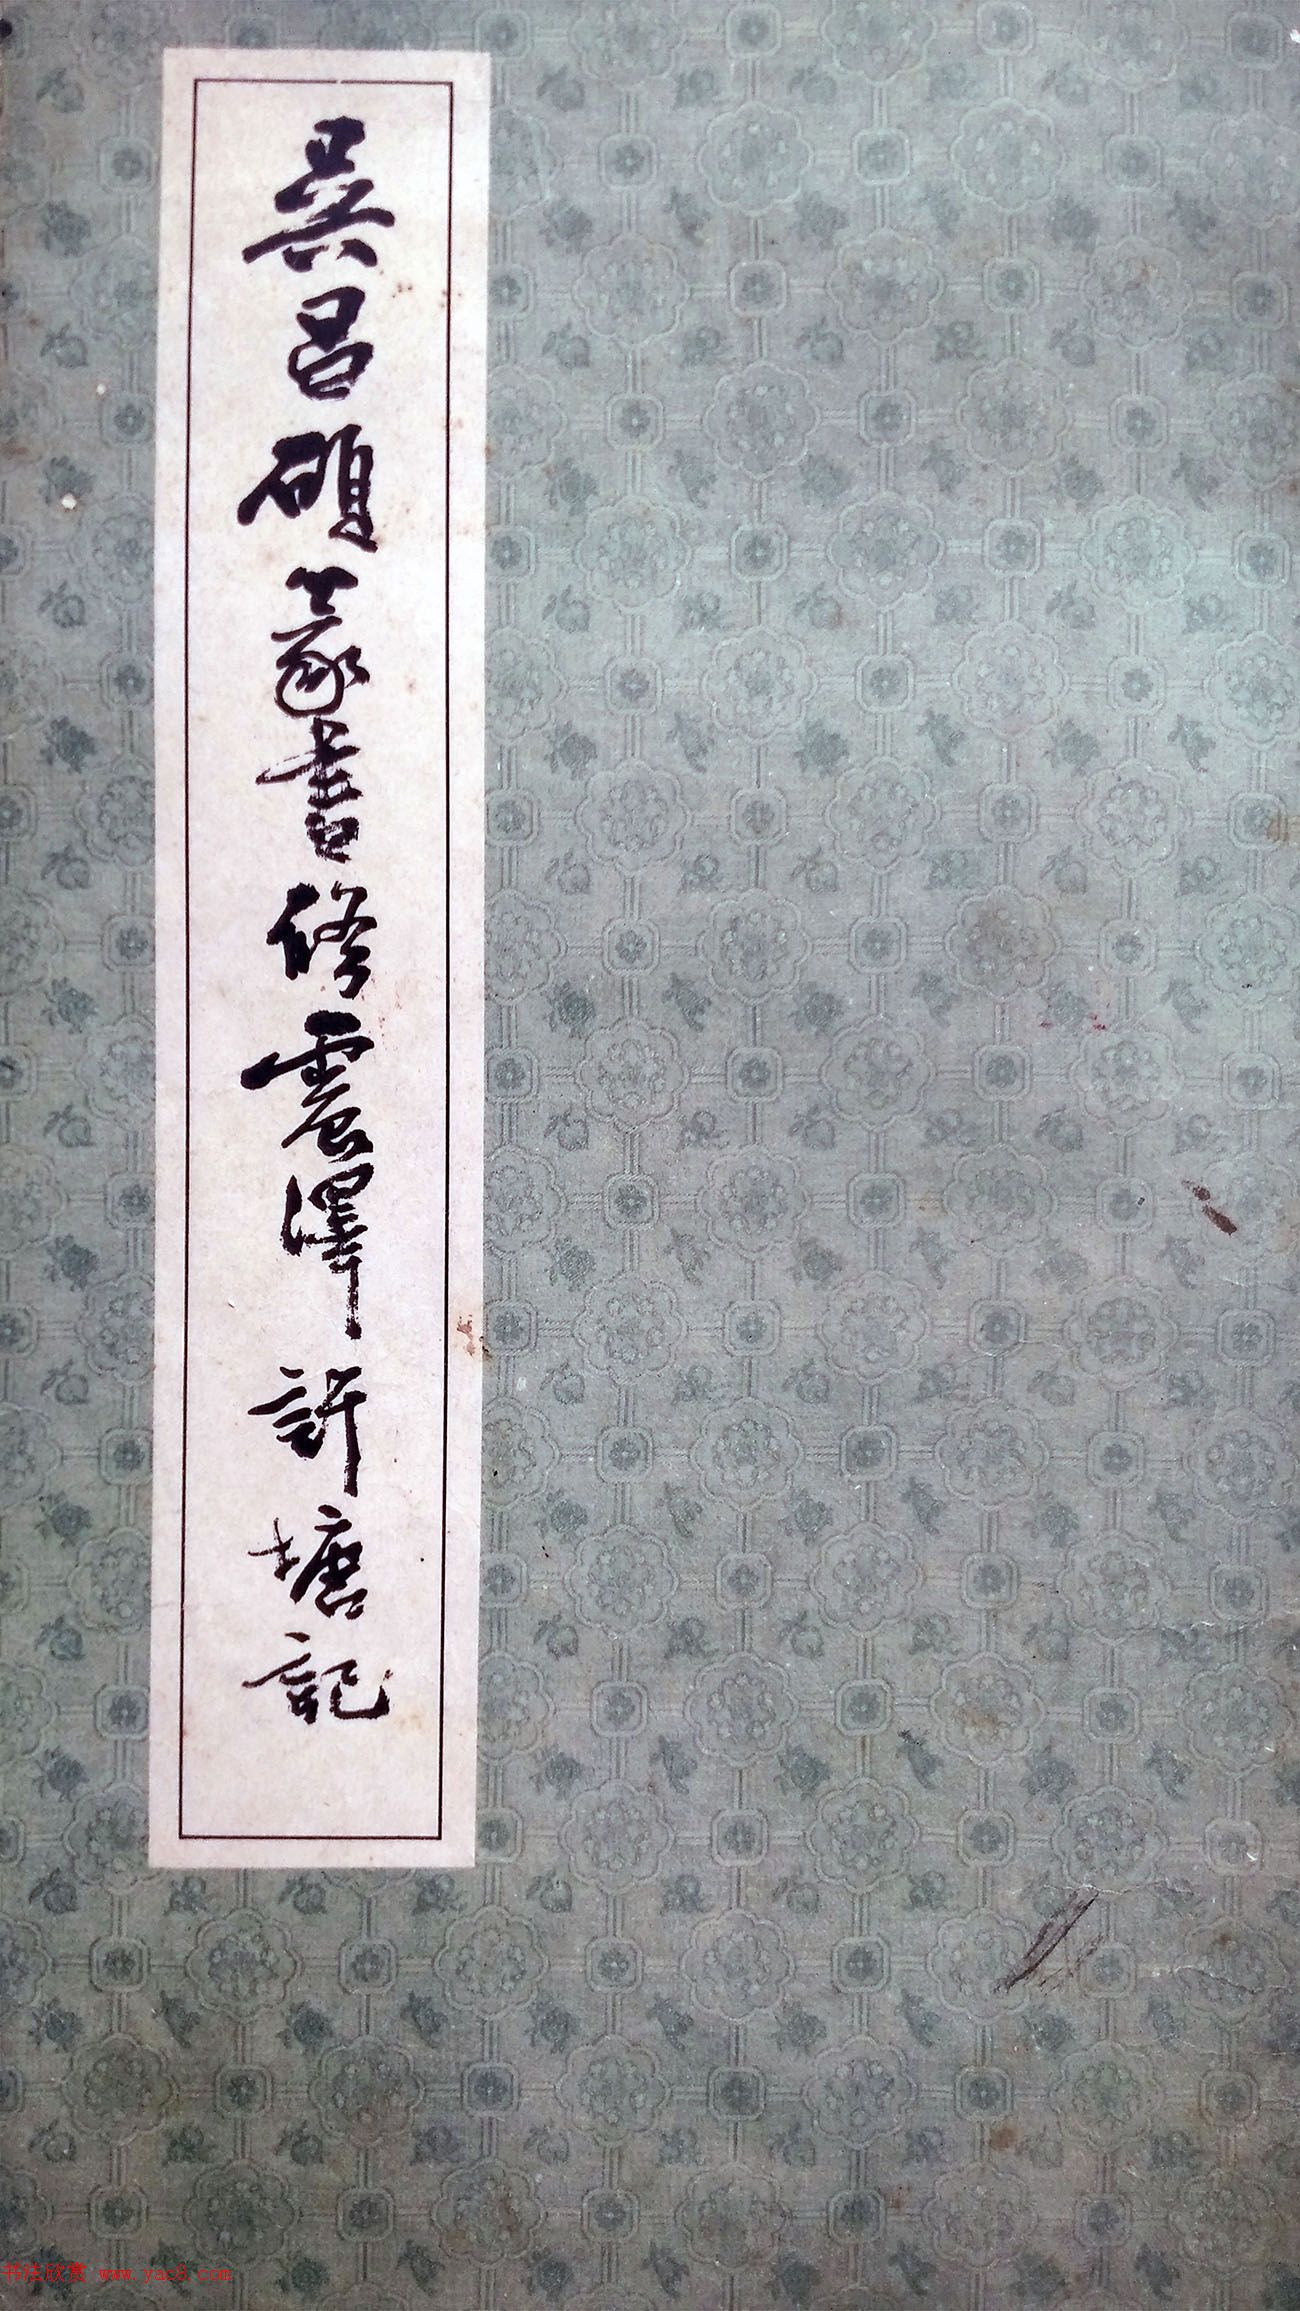 吴昌碩篆書修震澤許塘記
书法欣赏 www.yac8.com